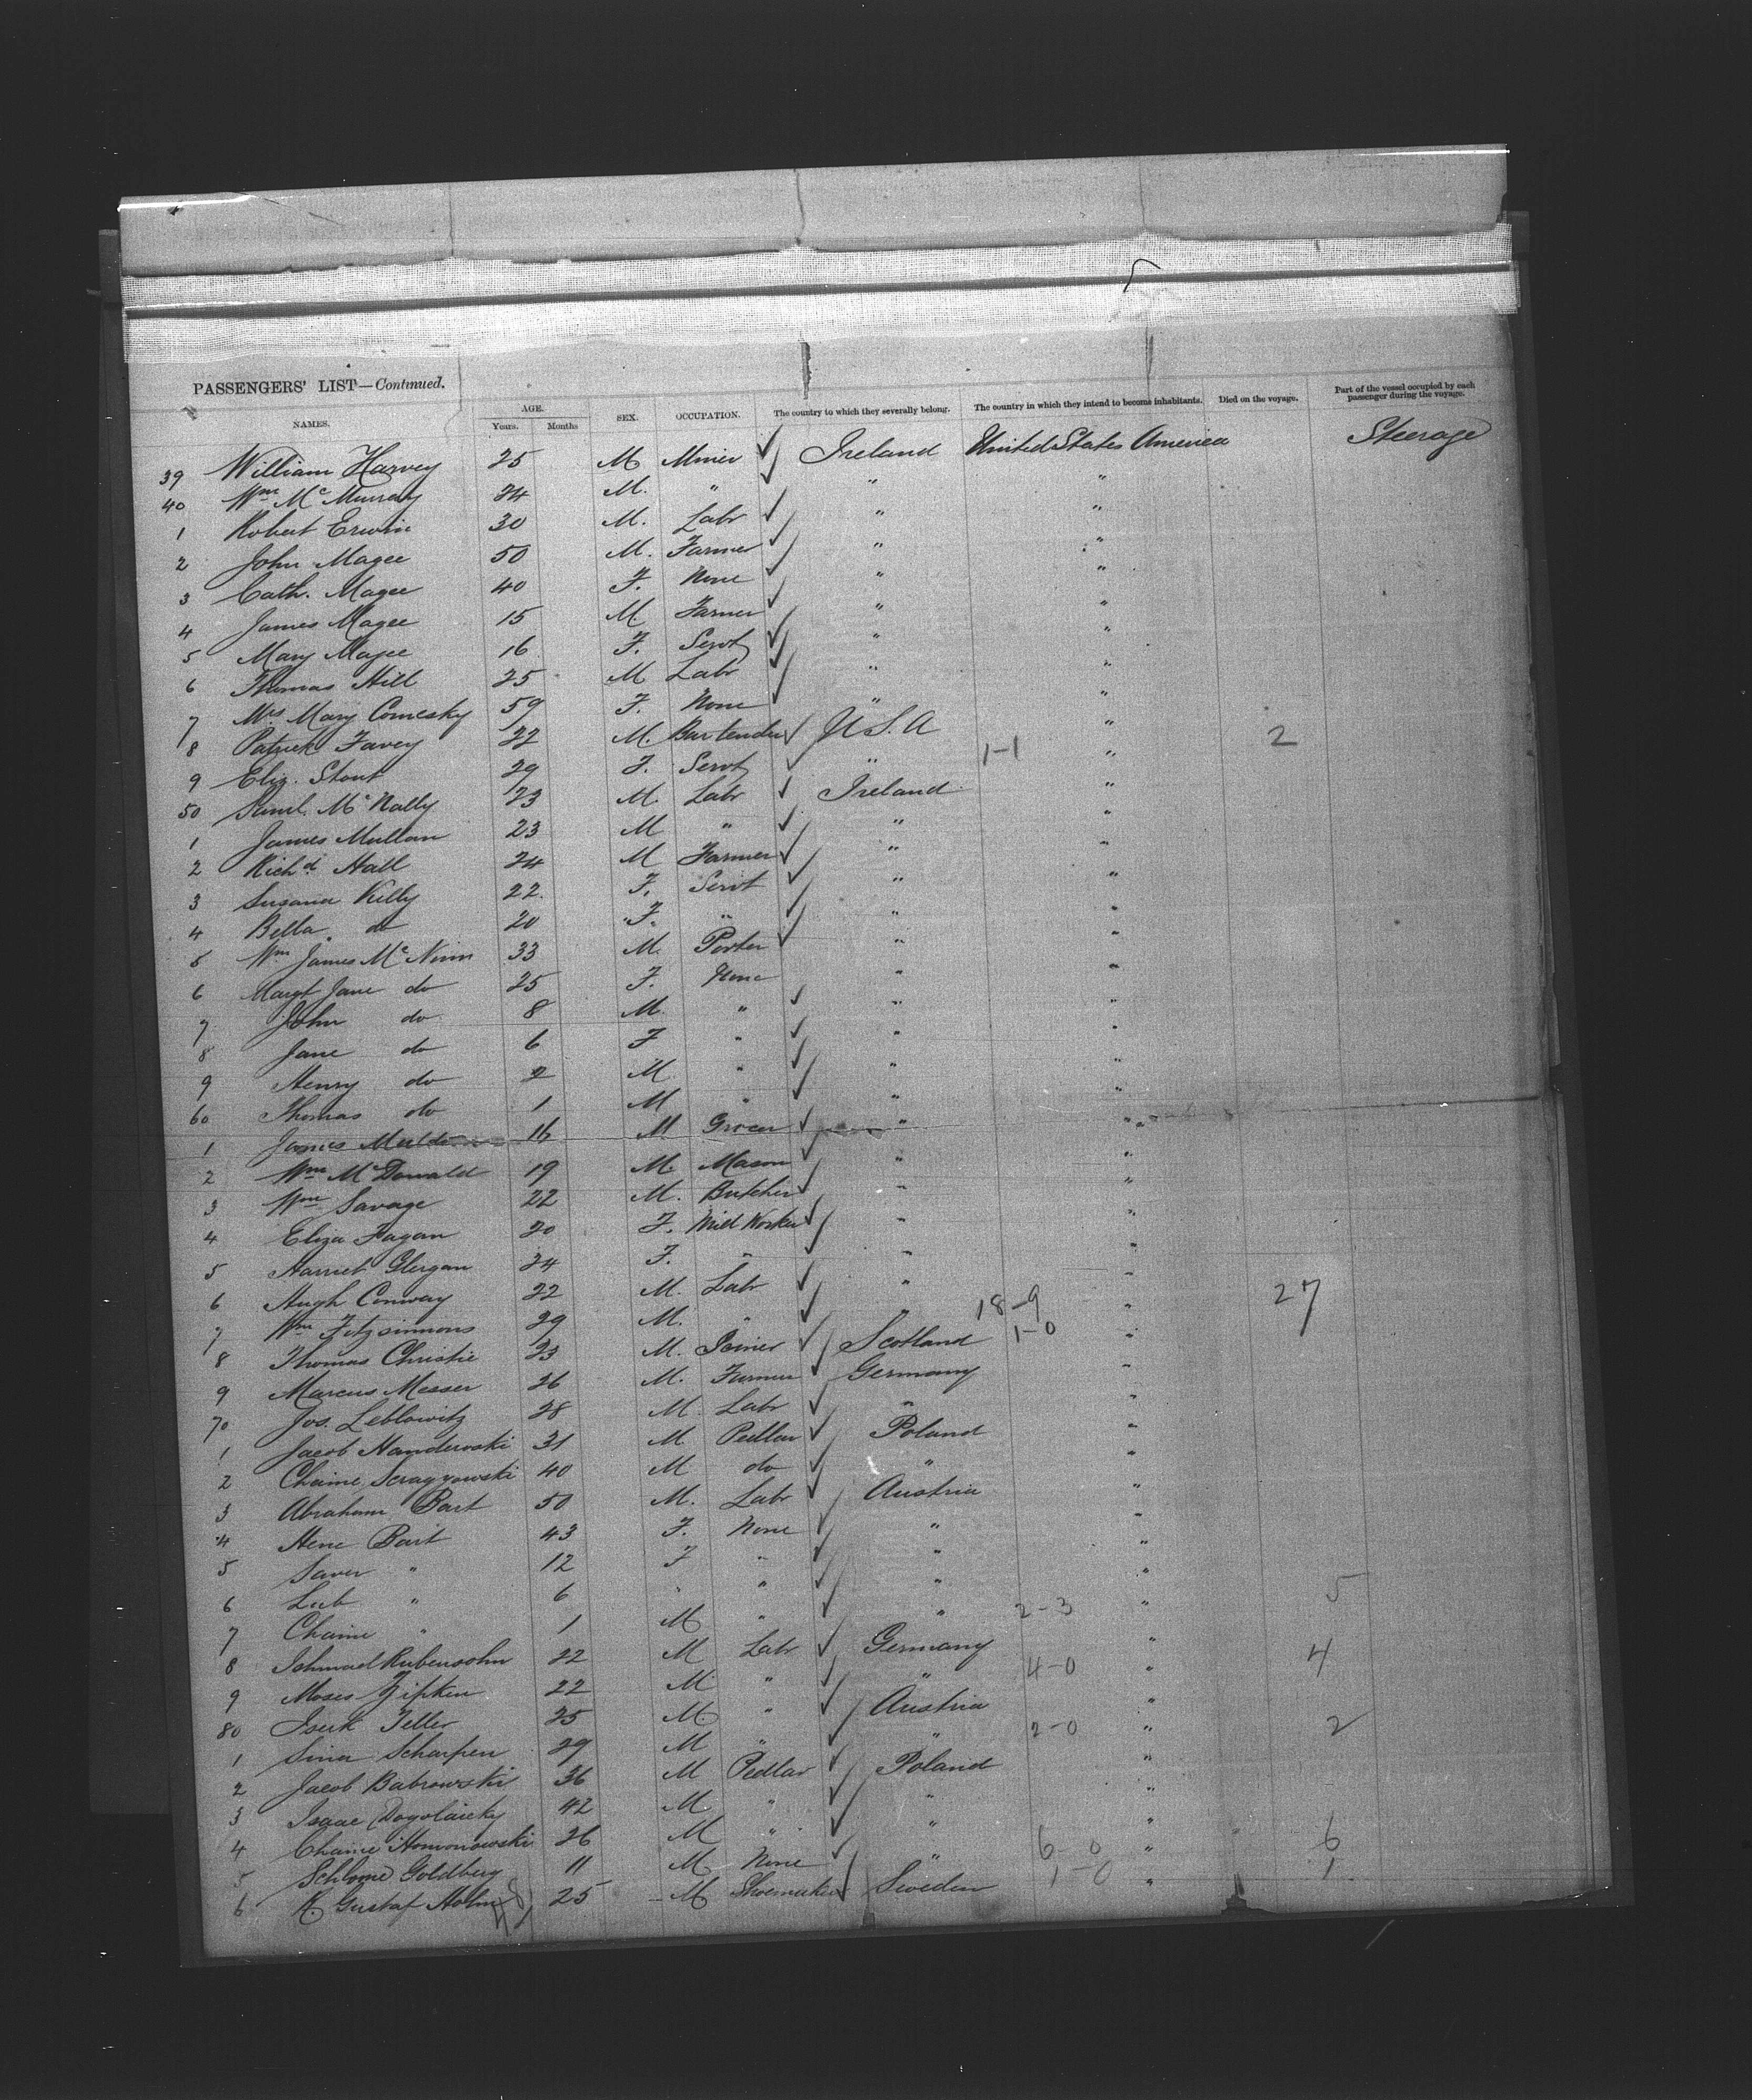 PASSENGERS' LIST—Continued.
NAMES. AGE. Years. Months SEX. OCCUPATION. The country to which they severally belong. The country in which they intend to become inhabitants. Died on the voyage. Part of the vessel occupied by each passenger during the voyage.
39 William Harvey 25 M Miner ✓ Ireland United States America Steerage
40 Wm McMurray 24 M. " ✓ " "
1 Robert Erwin 30 M. Labr ✓ " "
2 John Magee 50 M. Farmer ✓ " "
3 Cath. Magee 40 F. None ✓ " "
4 James Magee 15 M. Farmer ✓ " "
5 Mary Magee 16 F. Servt ✓ " "
6 Thomas Hill 25 M Labr ✓ " "
7 Mrs Mary Comesky 59 F. None ✓ " "
8 Patrick Favey 22 M. Bartender ✓ U.S.A "
9 Eliz. Stout 29 F. Servt ✓ " 1-1 " 2
50 Saml. McNally 23 M. Labr ✓ Ireland "
1 James Mullan 23 M " ✓ " "
2 Richd Hall 24 M Farmer ✓ " "
3 Susana Kelly 22. F. Servt ✓ " "
4 Bella do 20 F. " ✓ " "
5 Wm James McNinn 33 M. Porter ✓ " "
6 Margt Jane do 25 F. None " "
7 John do 8 M. " ✓ " "
8 Jane do 6 F " ✓ " "
9 Henry do 2 M " ✓ " "
60 Thomas do 1 M " ✓ " "
1 James 16 M Grocer ✓ " "
2 Wm McDonald 19 M. Mason ✓ " "
3 Wm Savage 22 M. Butcher ✓ " "
4 Eliza Fagan 20 F. Mill Worker ✓ " "
5 Harriet Glergan 24 F. " ✓ " "
6 Hugh Conway 22 M. Labr ✓ " "
7 Wm Fitzsimmons 29 M. " ✓ " 18-9 " 27
8 Thomas Christie 23 M. Joiner ✓ Scotland 1-0 "
9 Marcus Messer 26 M. Farmer ✓ Germany "
70 Jos. Leblowitz 28 M Labr ✓ " "
1 Jacob Handerwski 31 M Pedlar ✓ Poland "
2 Chaime 40 M do ✓ " "
3 Abraham Bart 50 M. Labr ✓ Austria "
4 Hene Bart 43 F. None ✓ " "
5 Saver " 12 F " ✓ " "
6 Leib " 6 " " ✓ " "
7 Chaim " 1 M " ✓ " 2-3 " 5
8 Rubensohn 22 M Labr ✓ Germany "
9 Moses Zipken 22 M " ✓ " 4-0 " 4
80 Iserk Teller 25 M. " ✓ Austria "
1 Sina Scharfen 29 M " ✓ " 2-0 " 2
2 Jacob Babrowski 36 M Pedlar ✓ Poland "
3 Isaac 42 M " ✓ " "
4 Chaime Homonowski 26 M " ✓ " "
5 Schlome Goldberg 11 M None ✓ " 6-0 " 6
6 K. Gustaf Holm 25 M Shoemaker ✓ Sweden 1-0 " 1
48